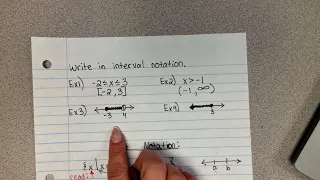 Write in interval notation.
Ex1) -2 ≤ x ≤ 3 Ex2) x > -1
[-2, 3] (-1, ∞)
Ex3) -3 4 Ex4) 3
Notation:
{x | x
read: a b